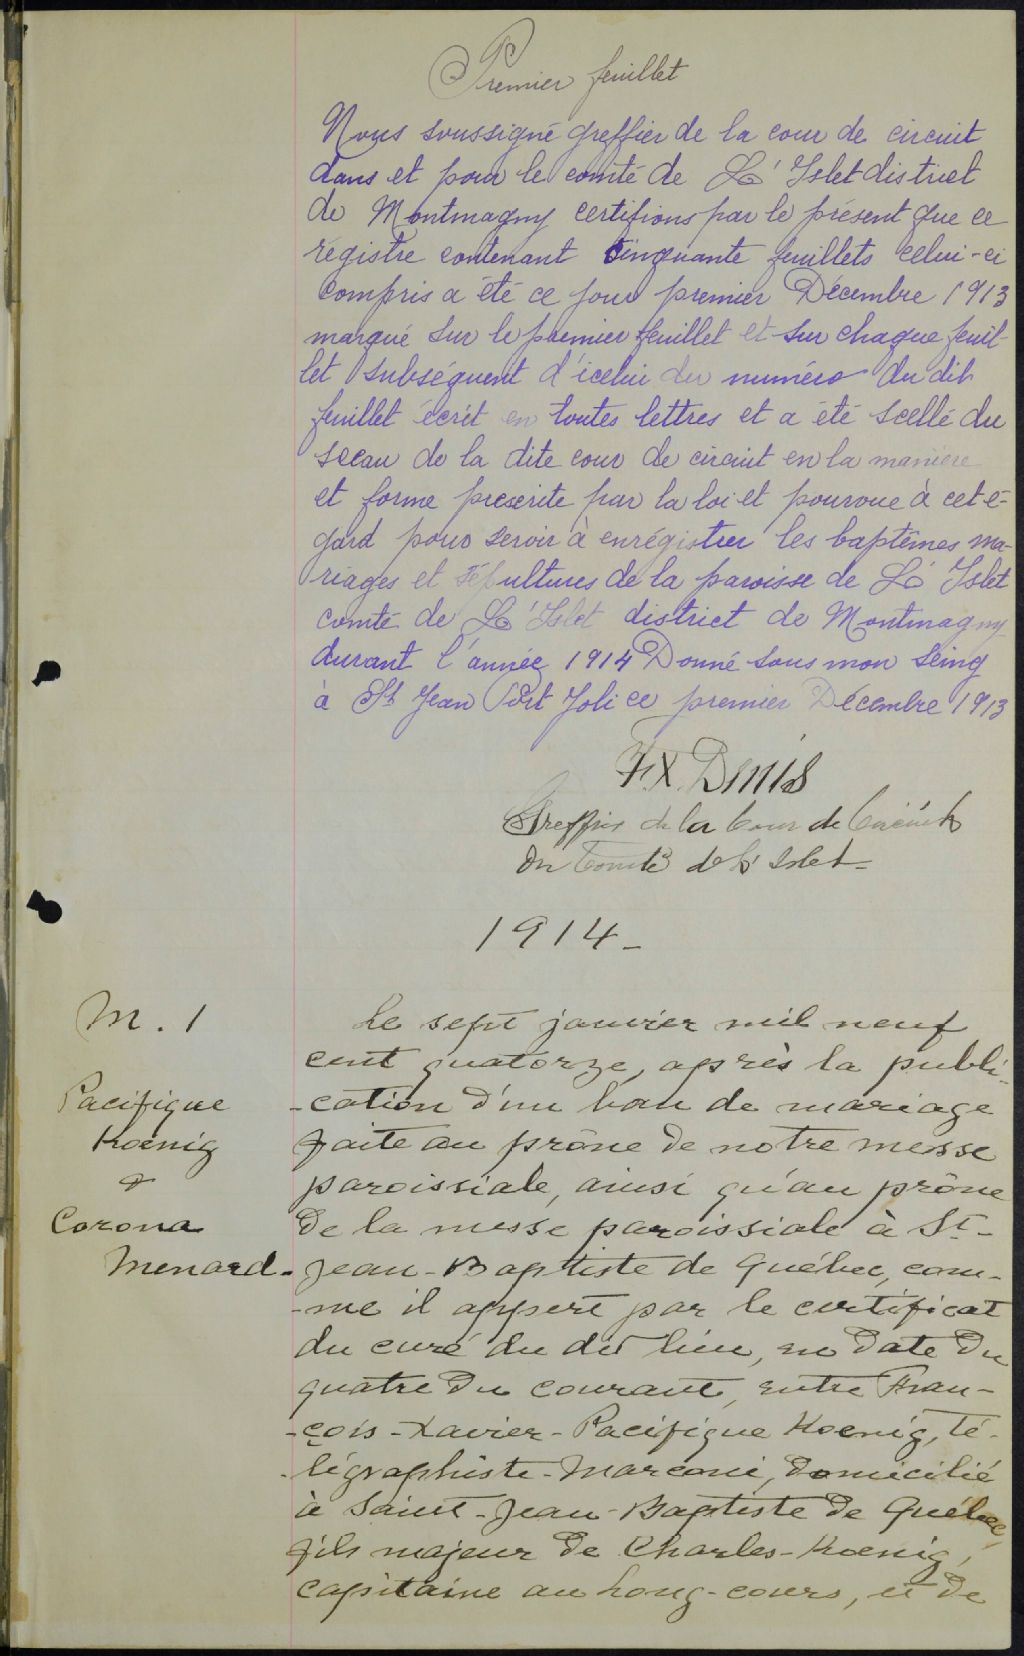 Premier feuillet
Nous soussigné greffier de la cour de circuit
dans et pour le comté de L'Islet district
de Montmagny certifions par le présent que ce
régistre contenant cinquante feuillets celui-ci
compris a été ce jour premier Décembre 1913
marqué sur le premier feuillet et sur chaque feuil-
let subséquent d'icelui du numéro du dit
feuillet écrit en toutes lettres et a été scellé du
sceau de la dite cour de circuit en la manière
et forme prescrite par la loi et pourvue à cet é-
gard pour servir à enrégistrer les baptêmes ma-
riages et sépultures de la paroisse de L'Islet
comté de L'Islet district de Montmagny
durant l'année 1914 Donné sous mon seing
à St Jean Port Joli ce premier Décembre 1913
F.X. Denis
Greffier de la Cour de Circuit
du Comté de L'Islet
1914-
M. 1
Pacifique
Koenig
&
Corona
Menard.
Le sept janvier mil neuf
cent quatorze, après la publi-
-cation d'un ban de mariage
faite au prône de notre messe
paroissiale, ainsi qu'au prône
de la messe paroissiale à St-
Jean-Baptiste de Québec, com-
-me il appert par le certificat
du curé du dit lieu, en date du
quatre du courant, entre Fran-
-çois-Xavier-Pacifique Koenig, té-
-légraphiste-Marconi, domicilié
à Saint-Jean-Baptiste de Québec,
fils majeur de Charles-Koenig,
capitaine au long-cours, et de